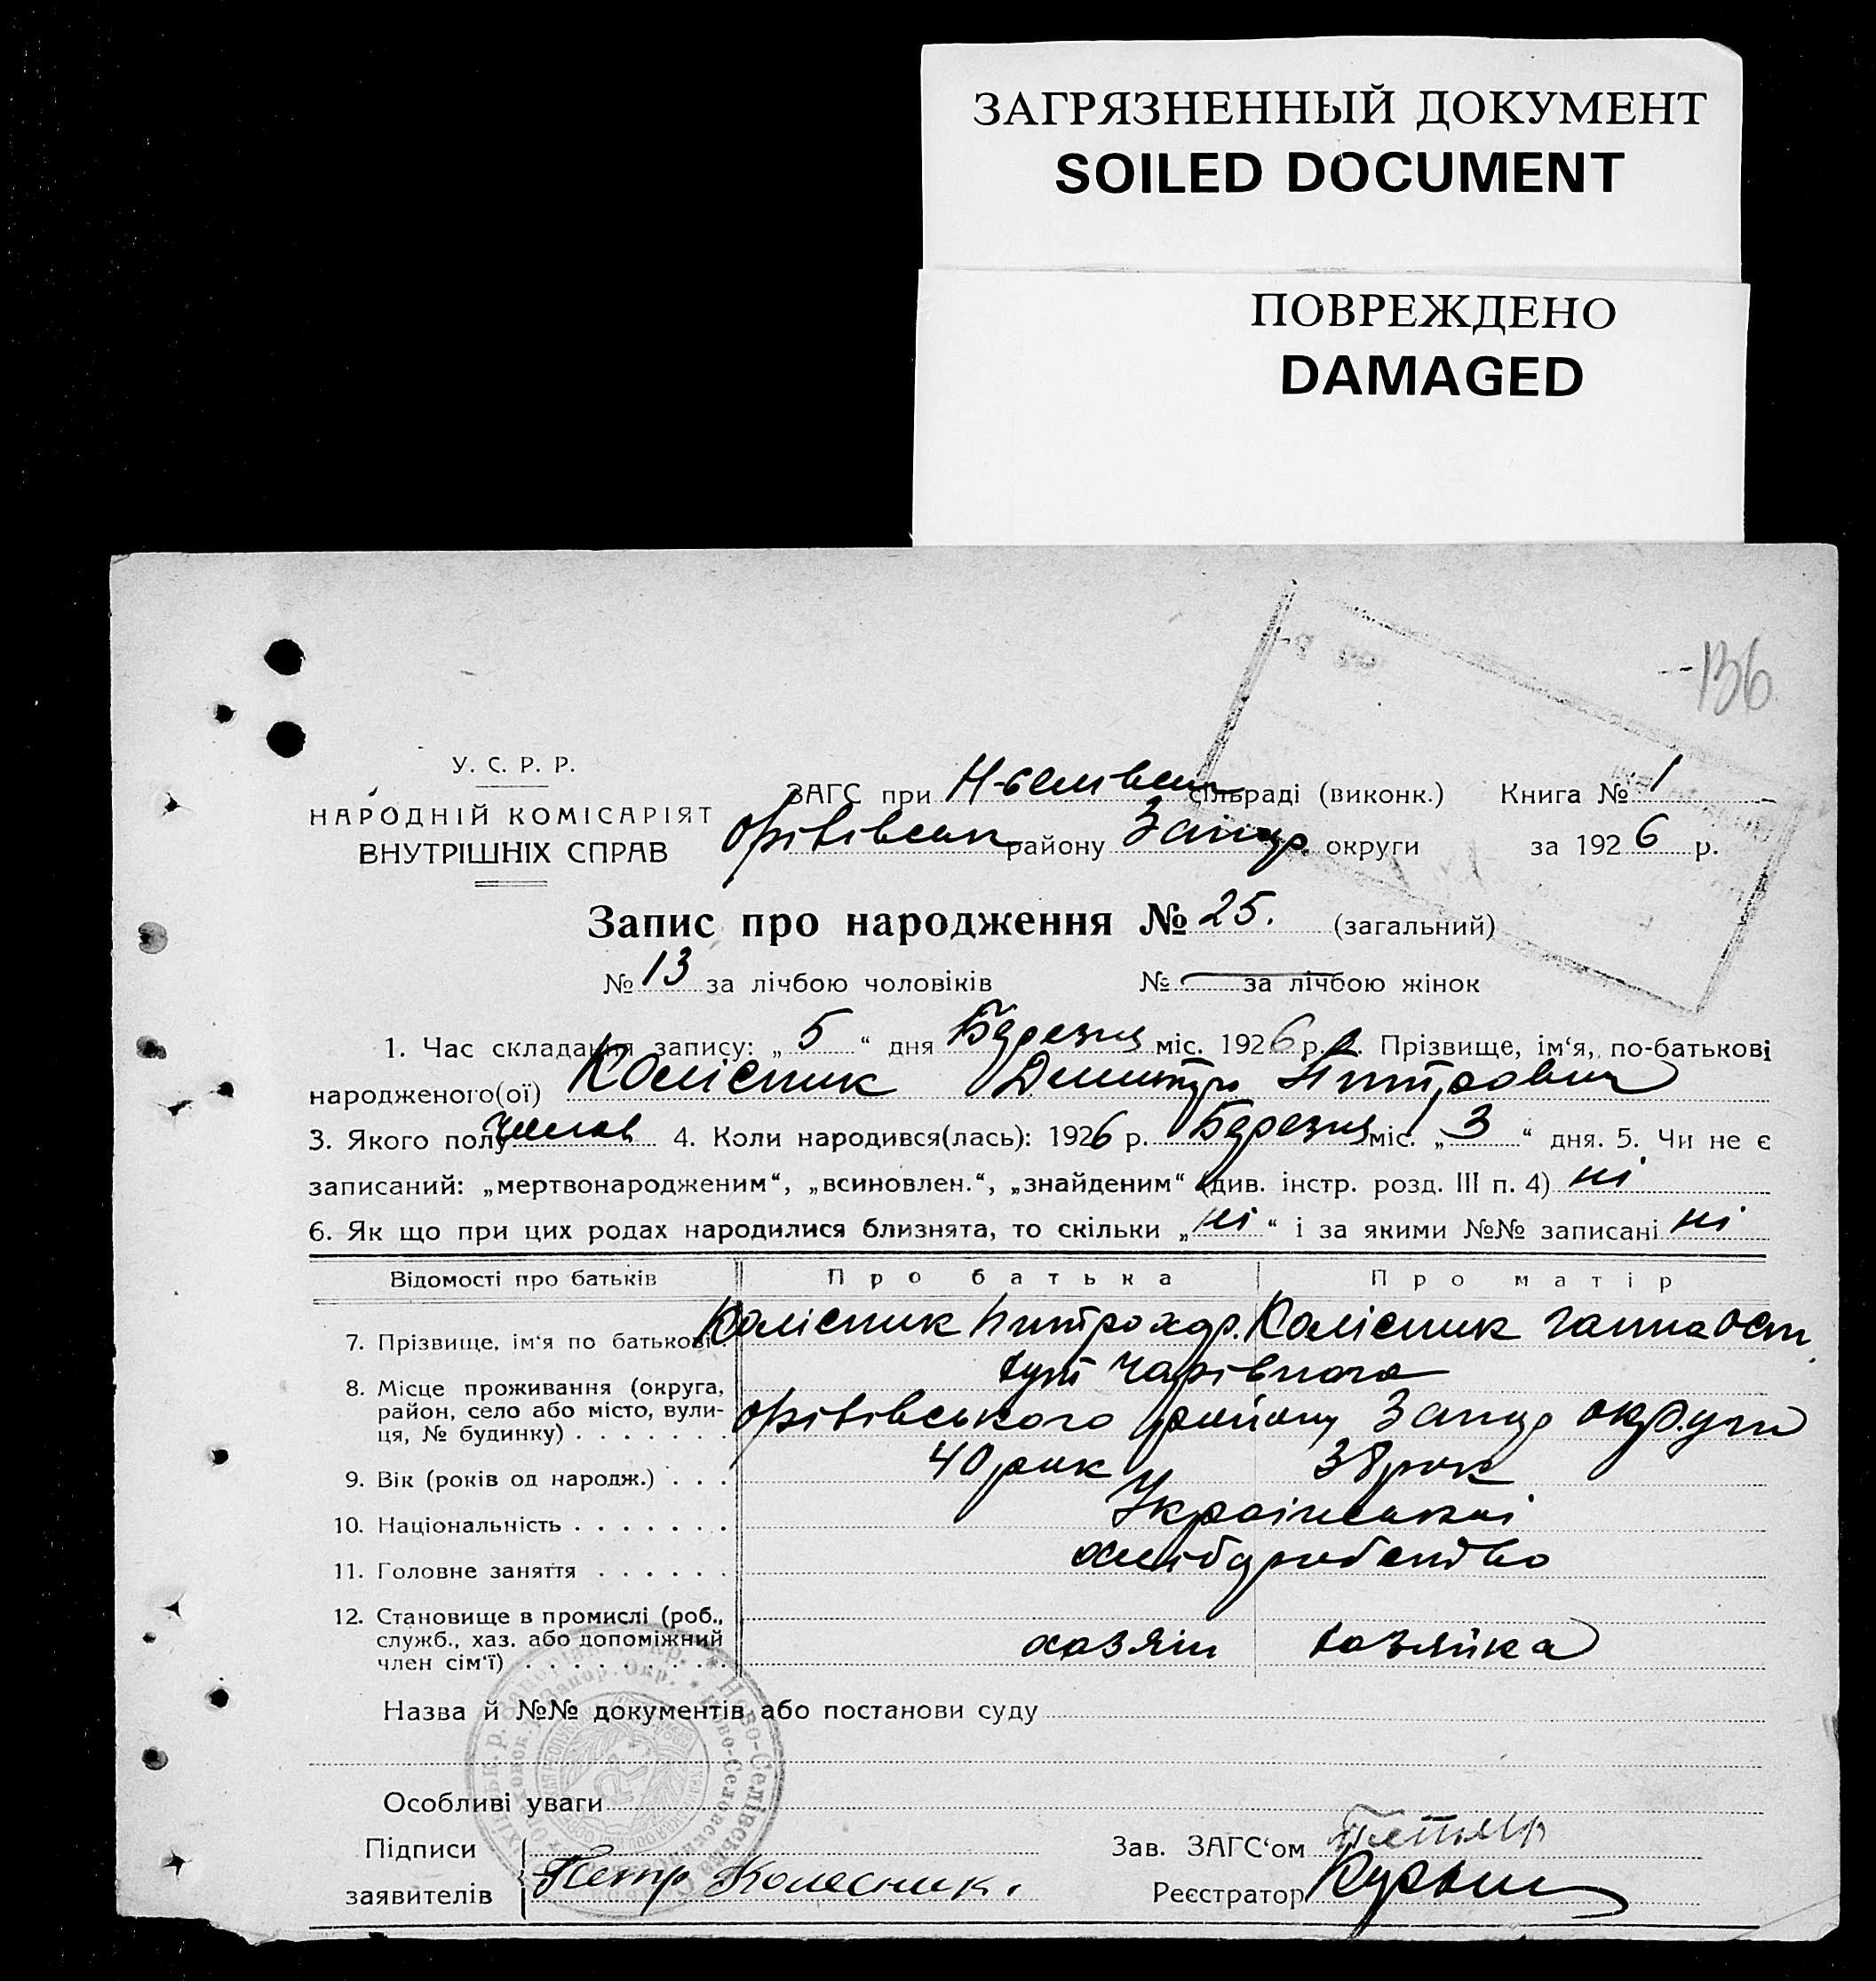 ЗАГРЯЗНЕННЫЙ ДОКУМЕНТ
SOILED DOCUMENT
ПОВРЕЖДЕНО
DAMAGED
136
У. С. Р. Р.
НАРОДНІЙ КОМІСАРІЯТ
ВНУТРІШНІХ СПРАВ
ЗАГС при сільраді (виконк.) Книга № 1
району округи за 1926 р.
Запис про народження № 25. (загальний)
№ 13 за лічбою чоловіків № — за лічбою жінок
1. Час складання запису: „ 5 “ дня Березня міс. 1926 р. 2. Прізвище, ім‘я, по-батькові
народженого(ої) Колісник
3. Якого полу 4. Коли народився(лась): 1926 р. Березня міс. „ 3 “ дня. 5. Чи не є
записаний: „мертвонародженим“, „всиновлен.“, „знайденим“ (див. інстр. розд. III п. 4) ні
6. Як що при цих родах народилися близнята, то скільки „ ні “ і за якими №№ записані ні
Відомості про батьків Про батька Про матір
7. Прізвище, ім‘я по батькові. Колісник Колісник Ганна
8. Місце проживання (округа,
район, село або місто, вули-
ця, № будинку) . . . . . . . району округи
9. Вік (років од народж.) . . . 40 рик 38 рик
10. Національність . . . . . . .
11. Головне заняття . . . . . . хлібуробство
12. Становище в промислі (роб.,
служб., хаз. або допоміжний
член сім‘ї) . . . . . . . . . . хозяін хозяйка
Назва й №№ документів або постанови суду
Особливі уваги
Підписи
заявителів Петр Колесник.
Зав. ЗАГС‘ом
Реєстратор